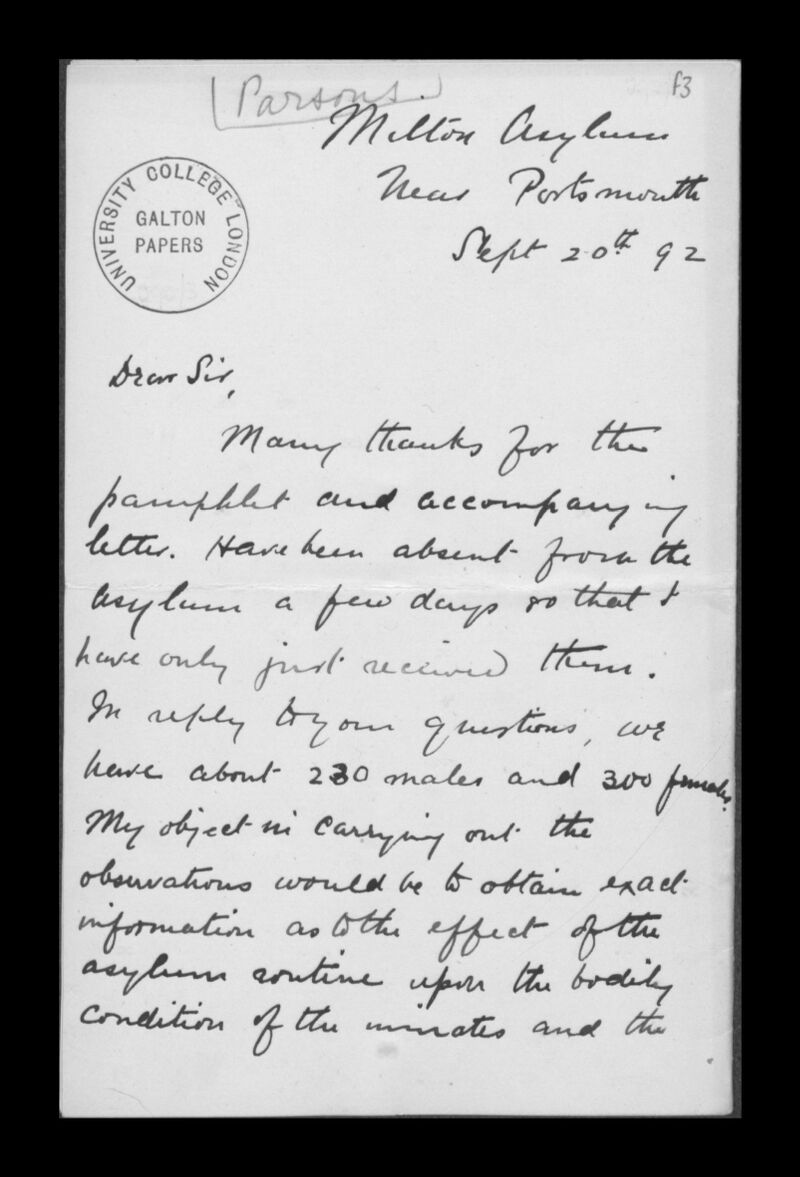 Parsons.
f3
Milton Asylum
Near Portsmouth
Sept 20th 92
UNIVERSITY COLLEGE LONDON
GALTON
PAPERS
Dear Sir,
Many thanks for the
pamphlet and accompanying
letter. Have been absent from the
asylum a few days so that I
have only just received them.
In reply to your questions, we
have about 230 males and 300 females.
My object in carrying out the
observations would be to obtain exact
information as to the effect of the
asylum routine upon the bodily
condition of the inmates and the